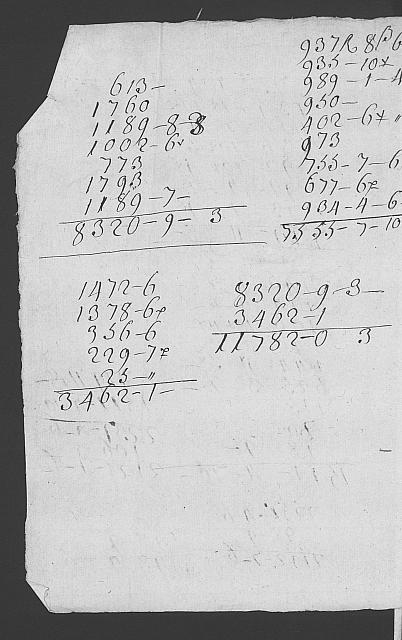 613 –
1760
1189 – 8 – 8
1002 – 6
773
1793
1189 – 7 –
8320 – 9 – 3

937 R 8 ß 6
935 – 10
989 – 1 – 4
950 –
402 – 6 "
973
755 – 7 – 6
677 – 6
934 – 4 – 6
7555 – 7 – 10

1472 – 6
1378 – 6
356 – 6
229 – 7
25 – "
3462 – 1 –

8320 – 9 – 3 –
3462 – 1
11782 – 0 3